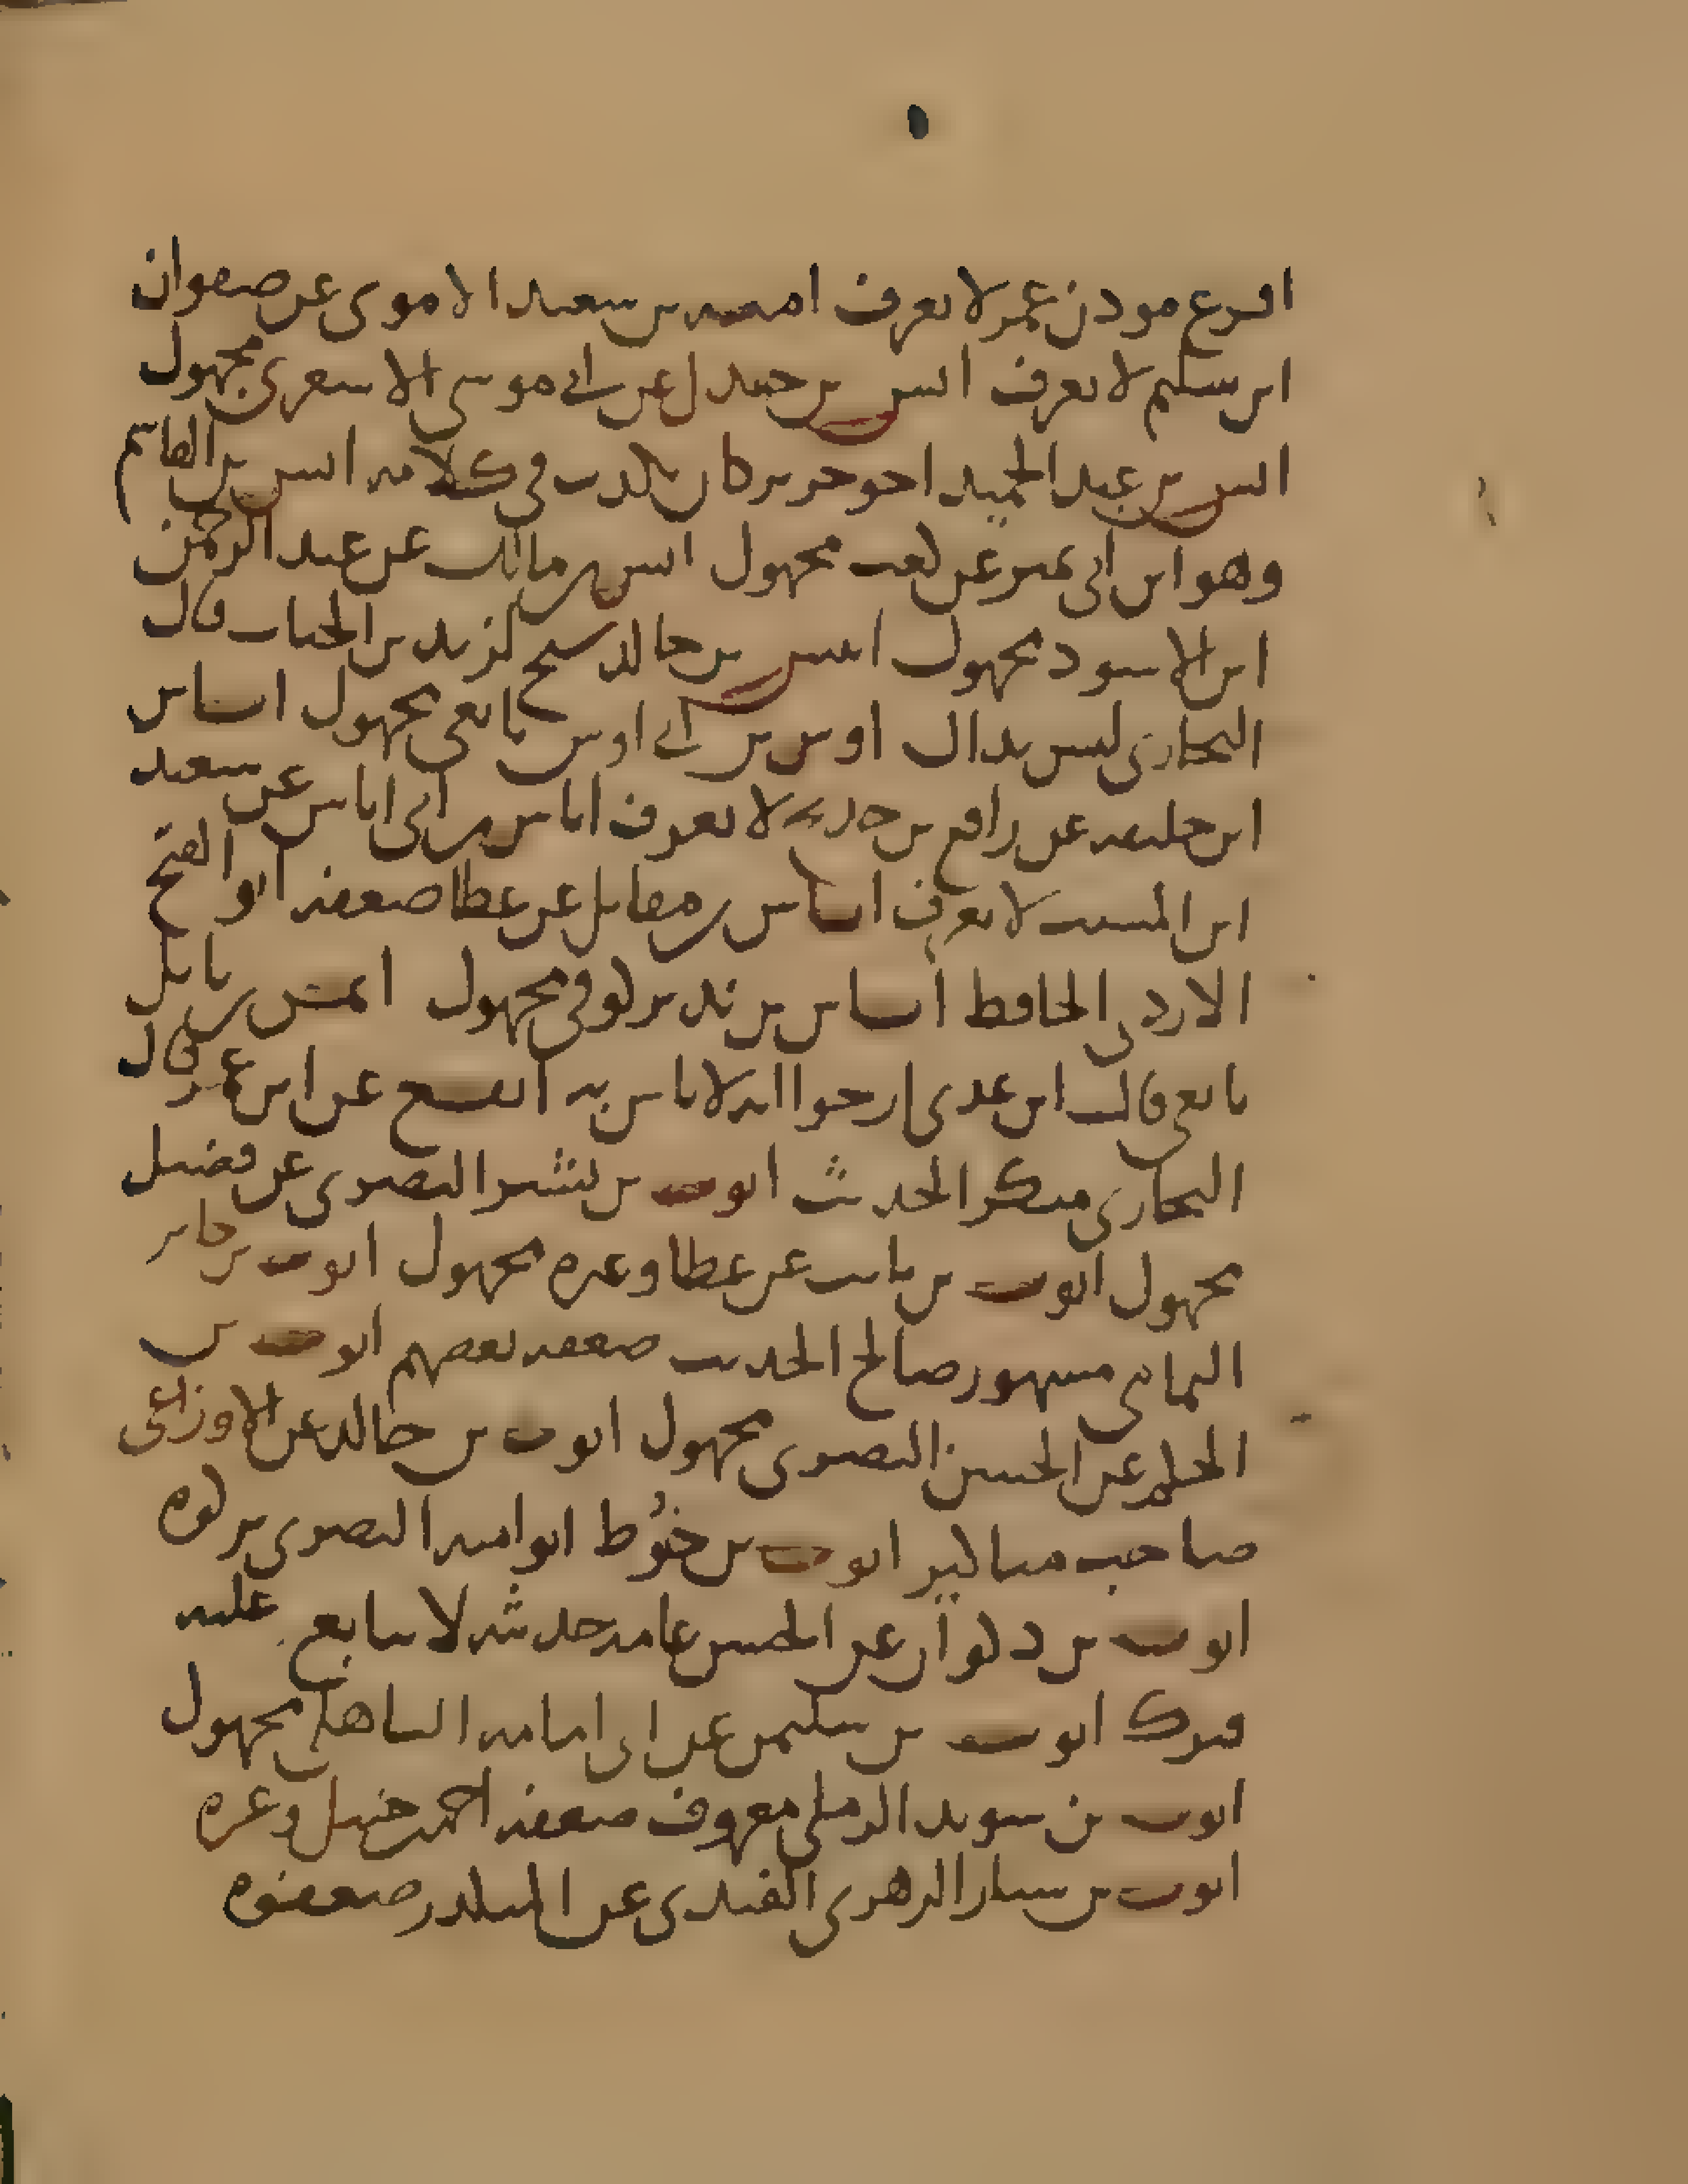 اقرع موذن عمر لا يعرف امية بن سعيد الاموي عن صفوان
ابن سليم لا يعرف انس بن جندل عن ابي موسى الاشعري مجهول
انس بن عبد الحميد اخو جرير كان يكذب في كلامه انس بن القاسم
وهو ابن ابي نمير عن كعب مجهول انس بن مالك عن عبد الرحمن
ابن الاسود مجهول انيس بن خالد شيخ لزيد بن الحباب قال
البخاري ليس بذاك اوس بن ابي اوس تابعي مجهول اياس
ابن خليفة عن رافع بن خديج لا يعرف اياس بن ابي اياس عن سعيد
ابن المسيب لا يعرف اياس بن مقاتل عن عطا ضعفه ابو الفتح
الازدي الحافظ اياس بن نذير كوفي مجهول ايمن بن نابل
تابعي قال ابن عدي ارجوا انه لا باس به ايفع عن ابن عمر قال
البخاري منكر الحديث ايوب بن بشير البصري عن فضيل
مجهول ايوب بن ثابت عن عطا وغيره مجهول ايوب بن جابر
اليمامي مشهور صالح الحديث ضعفه بعضهم ايوب بن
عن الحسن البصري مجهول ايوب بن خالد عن الاوزاعي
صاحب مناكير ايوب بن خوط ابو امية البصري تركوه
ايوب بن ذكوان عن الحسن عامة حديثه لا يتابع عليه
فترك ايوب بن سليمن عن ابي امامة الباهلي مجهول
ايوب بن سويد الرملي معروف ضعفه احمد بن حنبل وغيره
ايوب بن سيار الزهري الفيدي عن ابن المنكدر ضعفوه